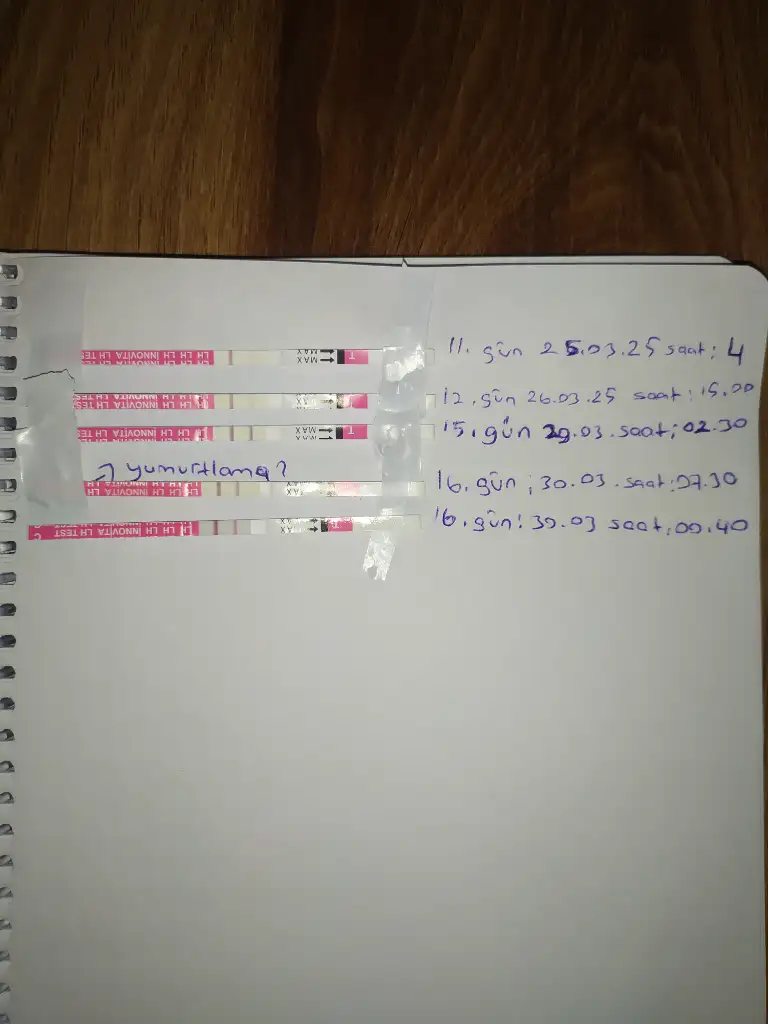 LH LH LH LH INNOVITA LH TEST MAX T 11. gün 25.03.25 saat: 4
LH LH LH INNOVITA LH TEST 12. gün 26.03.25 saat: 15.00
LH LH LH INNOVITA LH TEST MAX T 15. gün 29.03. saat; 02.30
→ yumurtlama?
LH LH LH INNOVITA LH 16. gün ; 30.03. saat: 07.30
C LH LH LH INNOVITA LH TEST 16. gün: 30.03 saat; 09.40